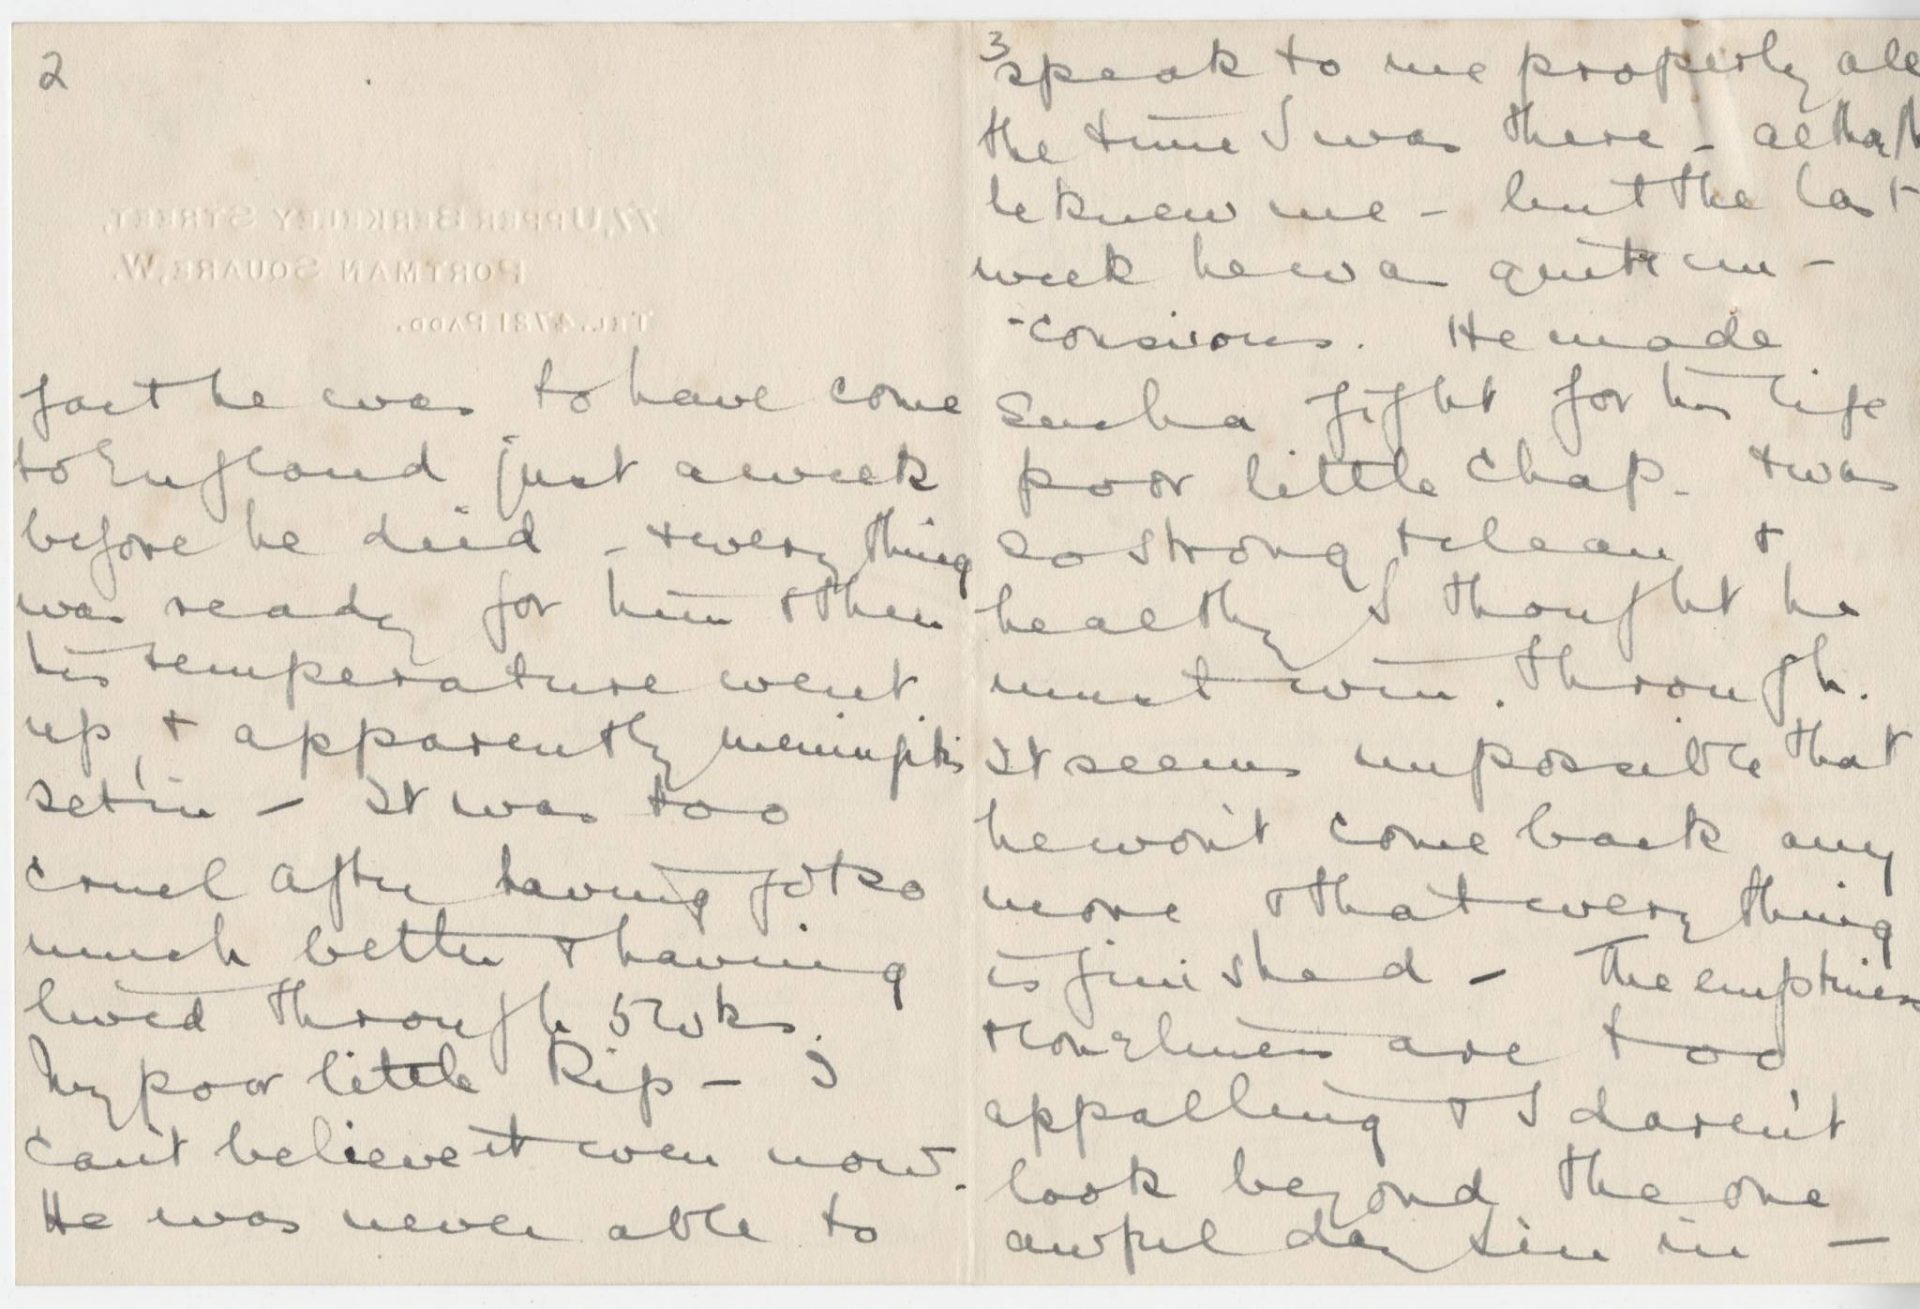 2
77, UPPER BERKELEY STREET,
PORTMAN SQUARE, W.
TEL. 4781 PADD.
fact he was to have come
to England just a week
before he died - & everything
was ready for him & then
his temperature went
up, & apparently meningitis
set in - It was too
cruel after having got so
much better & having
lived through 5 wks.
My poor little Rip - I
can't believe it even now.
He was never able to
3
speak to me properly all
the time I was there - altho'
he knew me - but the last
week he was quite un-
-consious. He made
such a fight for his life
poor little chap - & was
so strong & clean &
healthy I thought he
must win through.
It seems impossible that
he won't come back any
more & that everything
is finished - The emptiness
& loneliness are too
appalling & I daren't
look beyond the one
awful day I'm in -